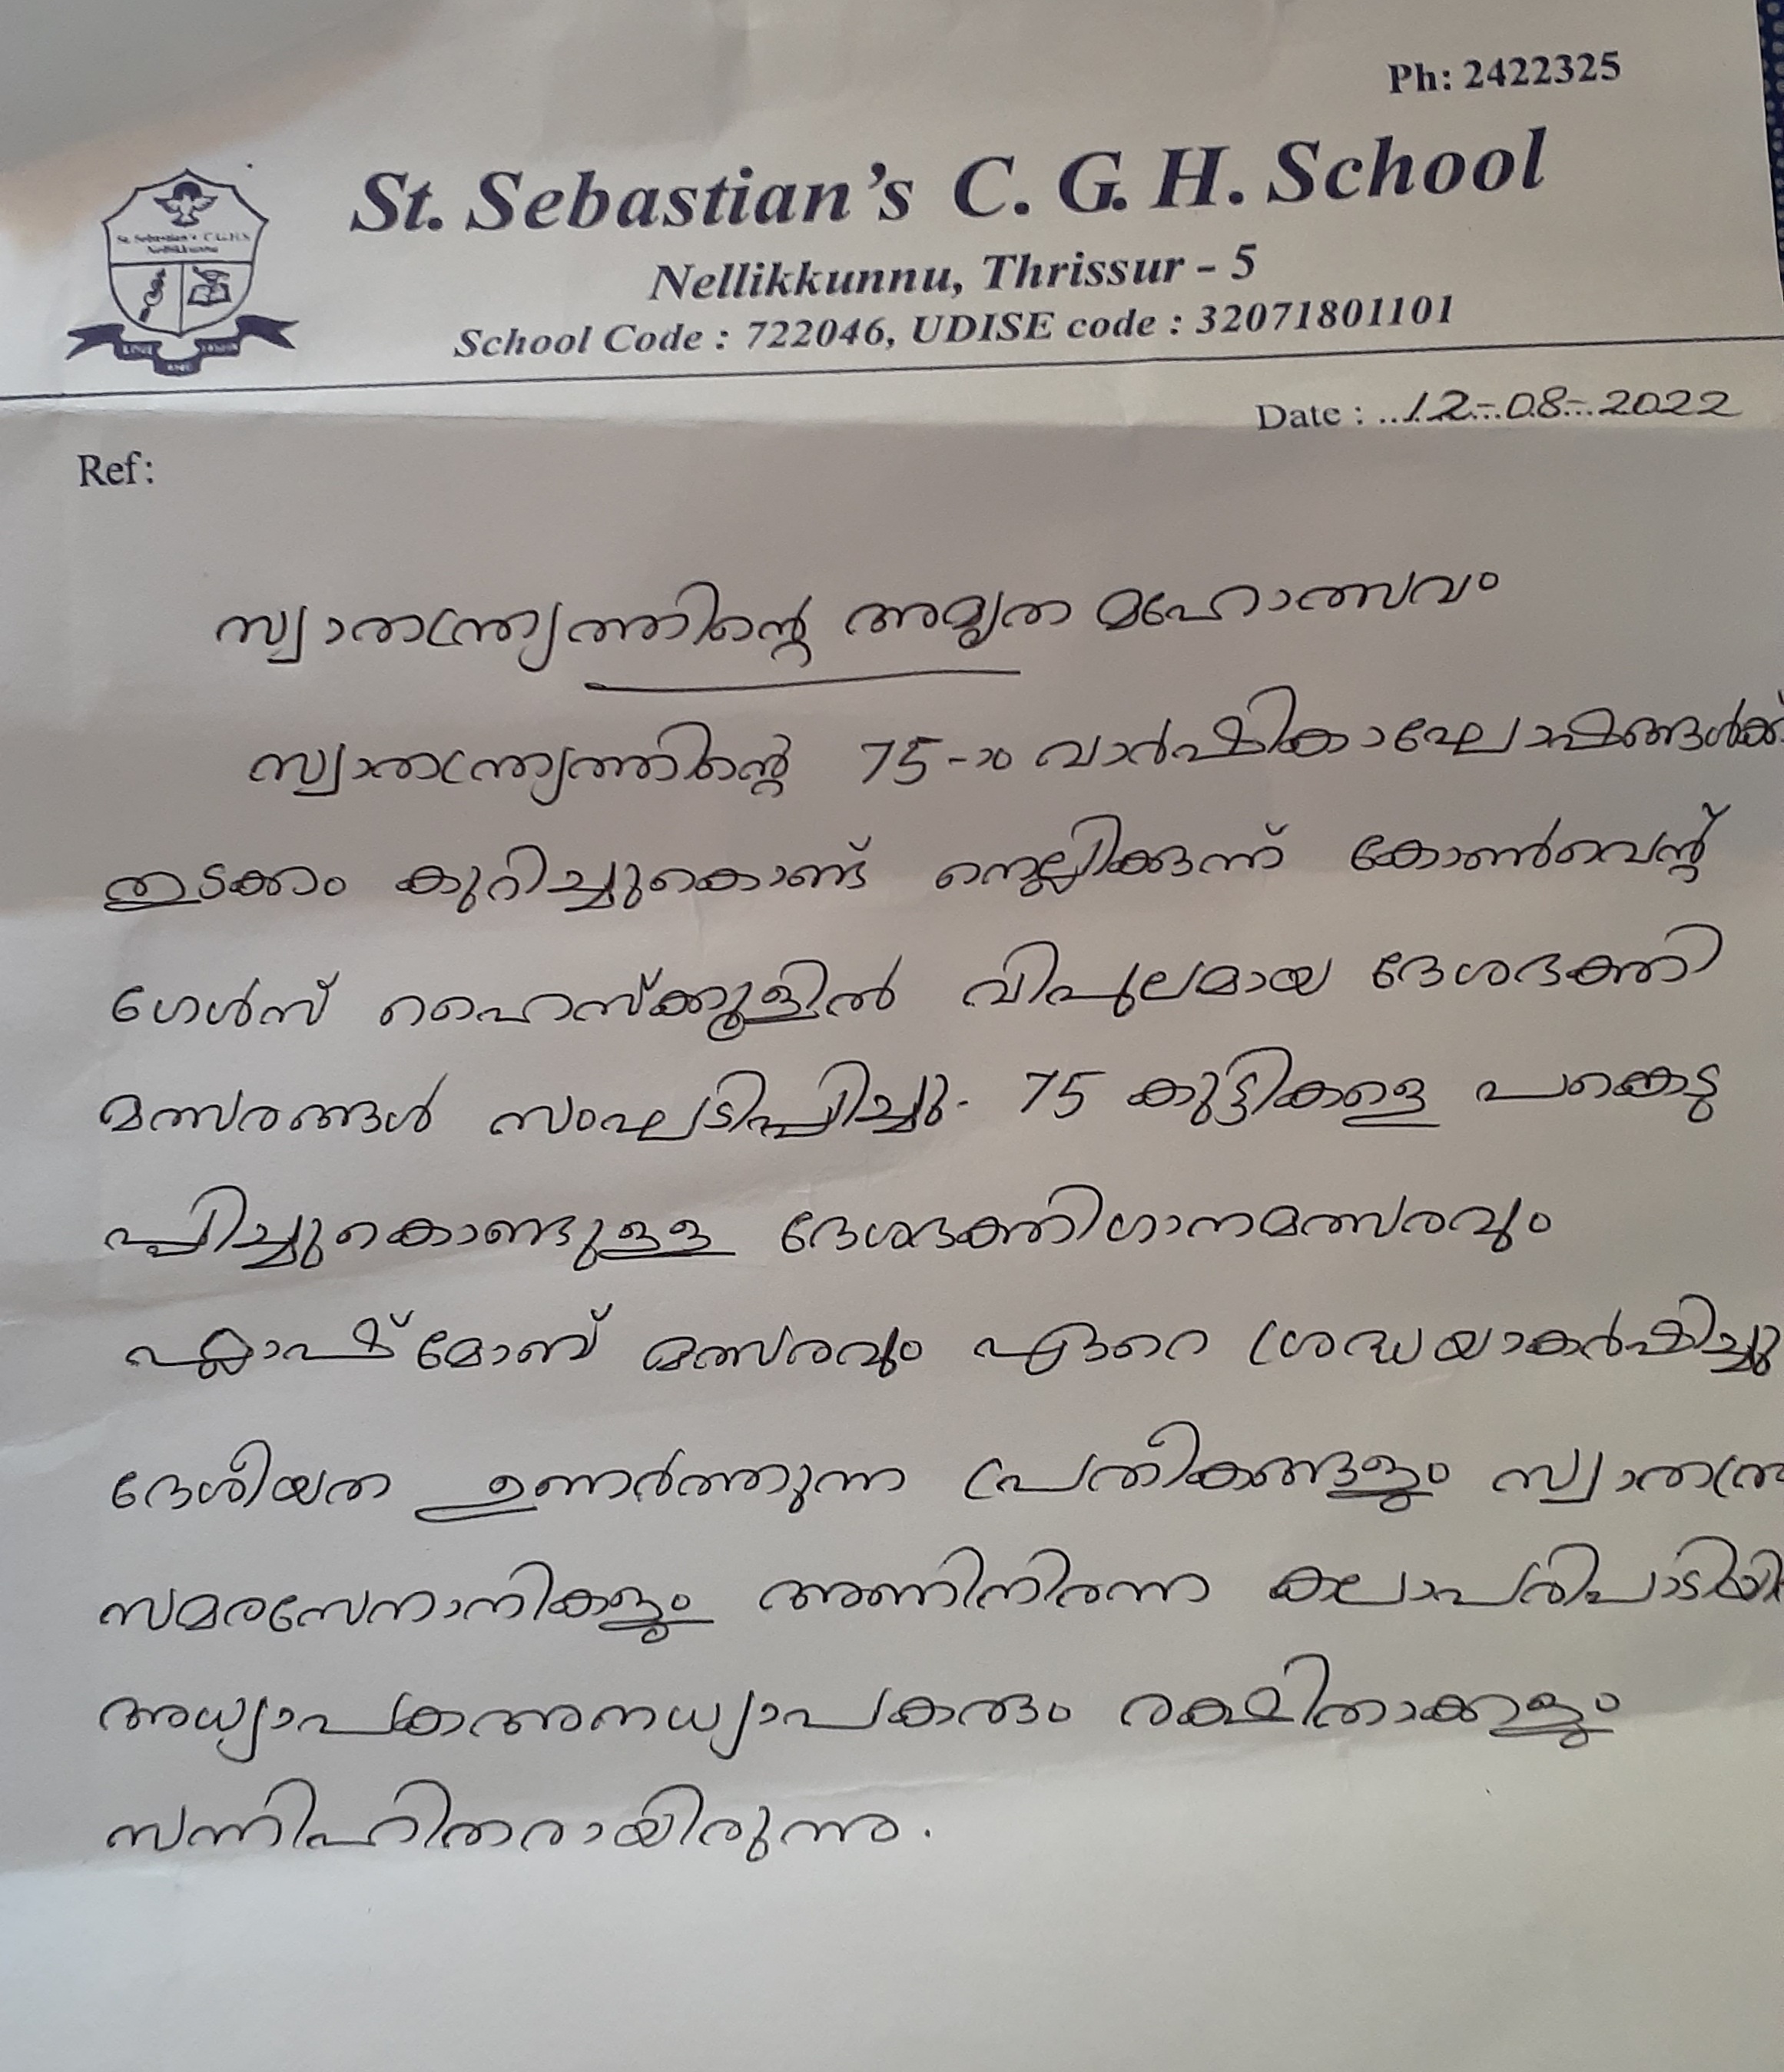 Ph: 2422325
St. Sebastian's C. G. H. School
St. Sebastian's C.G.H.S
Nellikkunnu
Nellikkunnu, Thrissur - 5
School Code : 722046, UDISE code : 32071801101
Date : 12-08-2022
Ref:
സ്വാതന്ത്ര്യത്തിന്റെ അമൃത മഹോത്സവം
സ്വാതന്ത്ര്യത്തിന്റെ 75-ാം വാർഷികാഘോഷങ്ങൾക്ക്
തുടക്കം കുറിച്ചുകൊണ്ട് നെല്ലിക്കുന്ന് കോൺവെന്റ്
ഗേൾസ് ഹൈസ്ക്കൂളിൽ വിപുലമായ ദേശഭക്തി
മത്സരങ്ങൾ സംഘടിപ്പിച്ചു. 75 കുട്ടികളെ പങ്കെടു
പ്പിച്ചുകൊണ്ടുള്ള ദേശഭക്തിഗാനമത്സരവും
ഫ്ലാഷ്മോബ് മത്സരവും ഏറെ ശ്രദ്ധയാകർഷിച്ചു
ദേശീയത ഉണർത്തുന്ന പ്രതീകങ്ങളും സ്വാതന്ത്ര
സമരസേനാനികളും അണിനിരന്ന കലാപരിപാടിയിൽ
അധ്യാപകഅനധ്യാപകരും രക്ഷിതാക്കളും
സന്നിഹിതരായിരുന്നു.